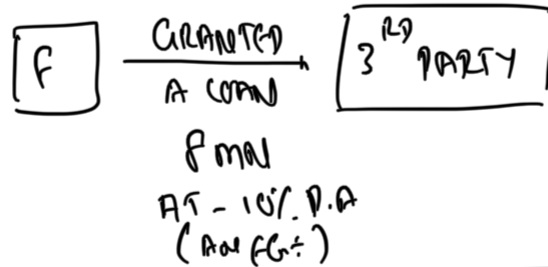 F
GRANTED
A LOAN
3RD PARTY
8 MN
AT - 10% P.A